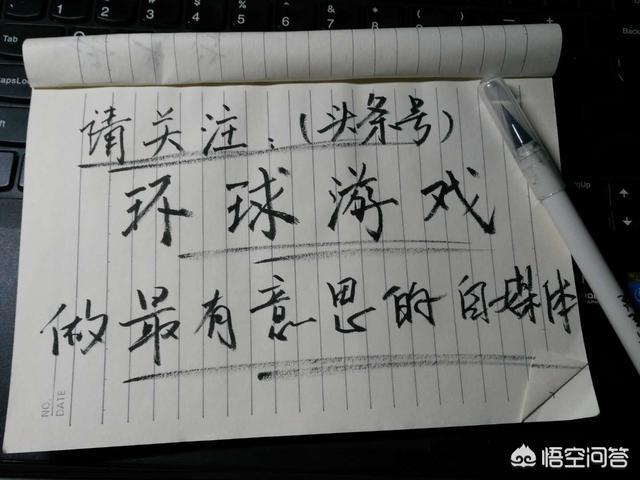 请关注：(头条号)
环球游戏
做最有意思的自媒体
NO.
DATE
悟空问答